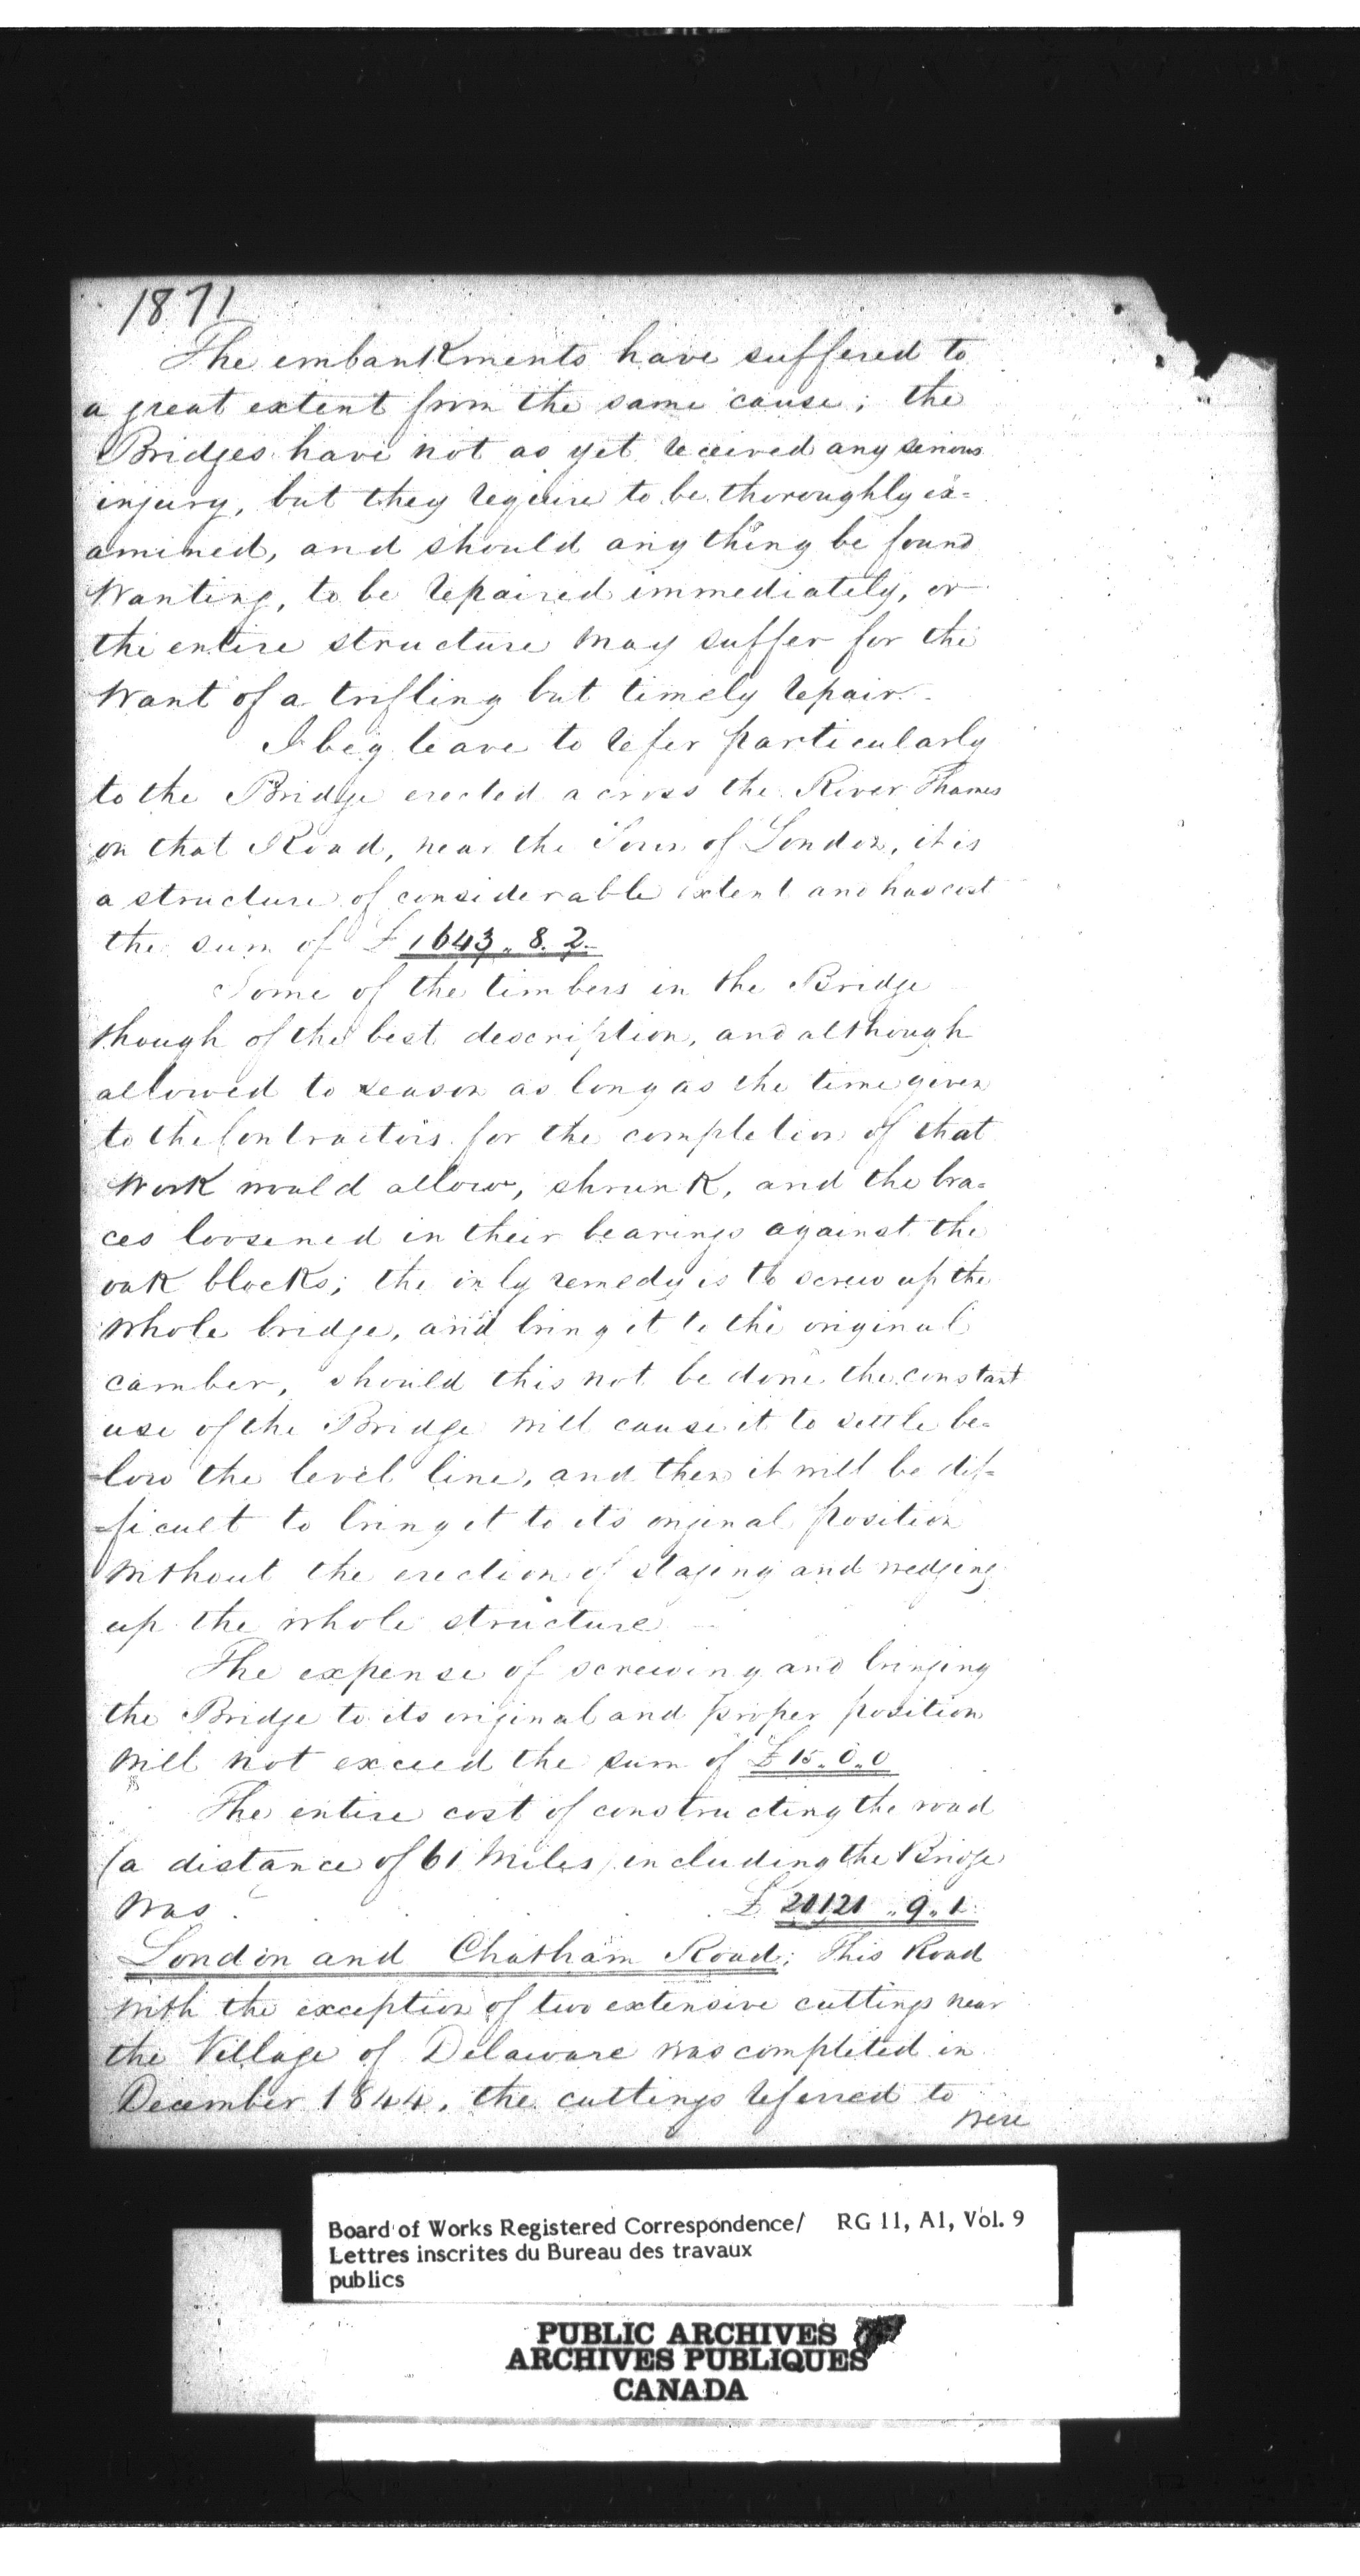 1871
The embankments have suffered to
a great extent from the same cause; the
Bridges have not as yet received any serious
injury, but they require to be thoroughly ex=
amined, and should any thing be found
Wanting, to be repaired immediately, or
the entire structure may suffer for the
Want of a trifling but timely repair.
I beg leave to refer particularly
to the Bridge erected across the River Thames
on that Road, near the Town of London, it is
a structure of considerable extent and has cost
the sum of £1643.8.2.
Some of the timbers in the Bridge
though of the best description, and although
allowed to season as long as the time given
to the Contractors for the completion of that
Work would allow, shrunk, and the bra=
ces loosened in their bearings against the
oak blocks; the only remedy is to screw up the
Whole bridge, and bring it to the original
camber, should this not be done the constant
use of the Bridge will cause it to settle be=
=low the level line, and then it will be dif=
=ficult to bring it to its original position
Without the erection of staging and wedging
up the whole structure
The expense of screwing and bringing
the Bridge to its original and proper position
Will not exceed the sum of £15.0.0
The entire cost of constructing the road
(a distance of 61 Miles) including the Bridge
Was . . . . £20121.9.1.
London and Chatham Road; This Road
With the exception of two extensive cuttings near
the Village of Delaware was completed in
December 1844, the cuttings referred to
were
Board of Works Registered Correspondence/ RG 11, A1, Vol. 9
Lettres inscrites du Bureau des travaux
publics
PUBLIC ARCHIVES
ARCHIVES PUBLIQUES
CANADA